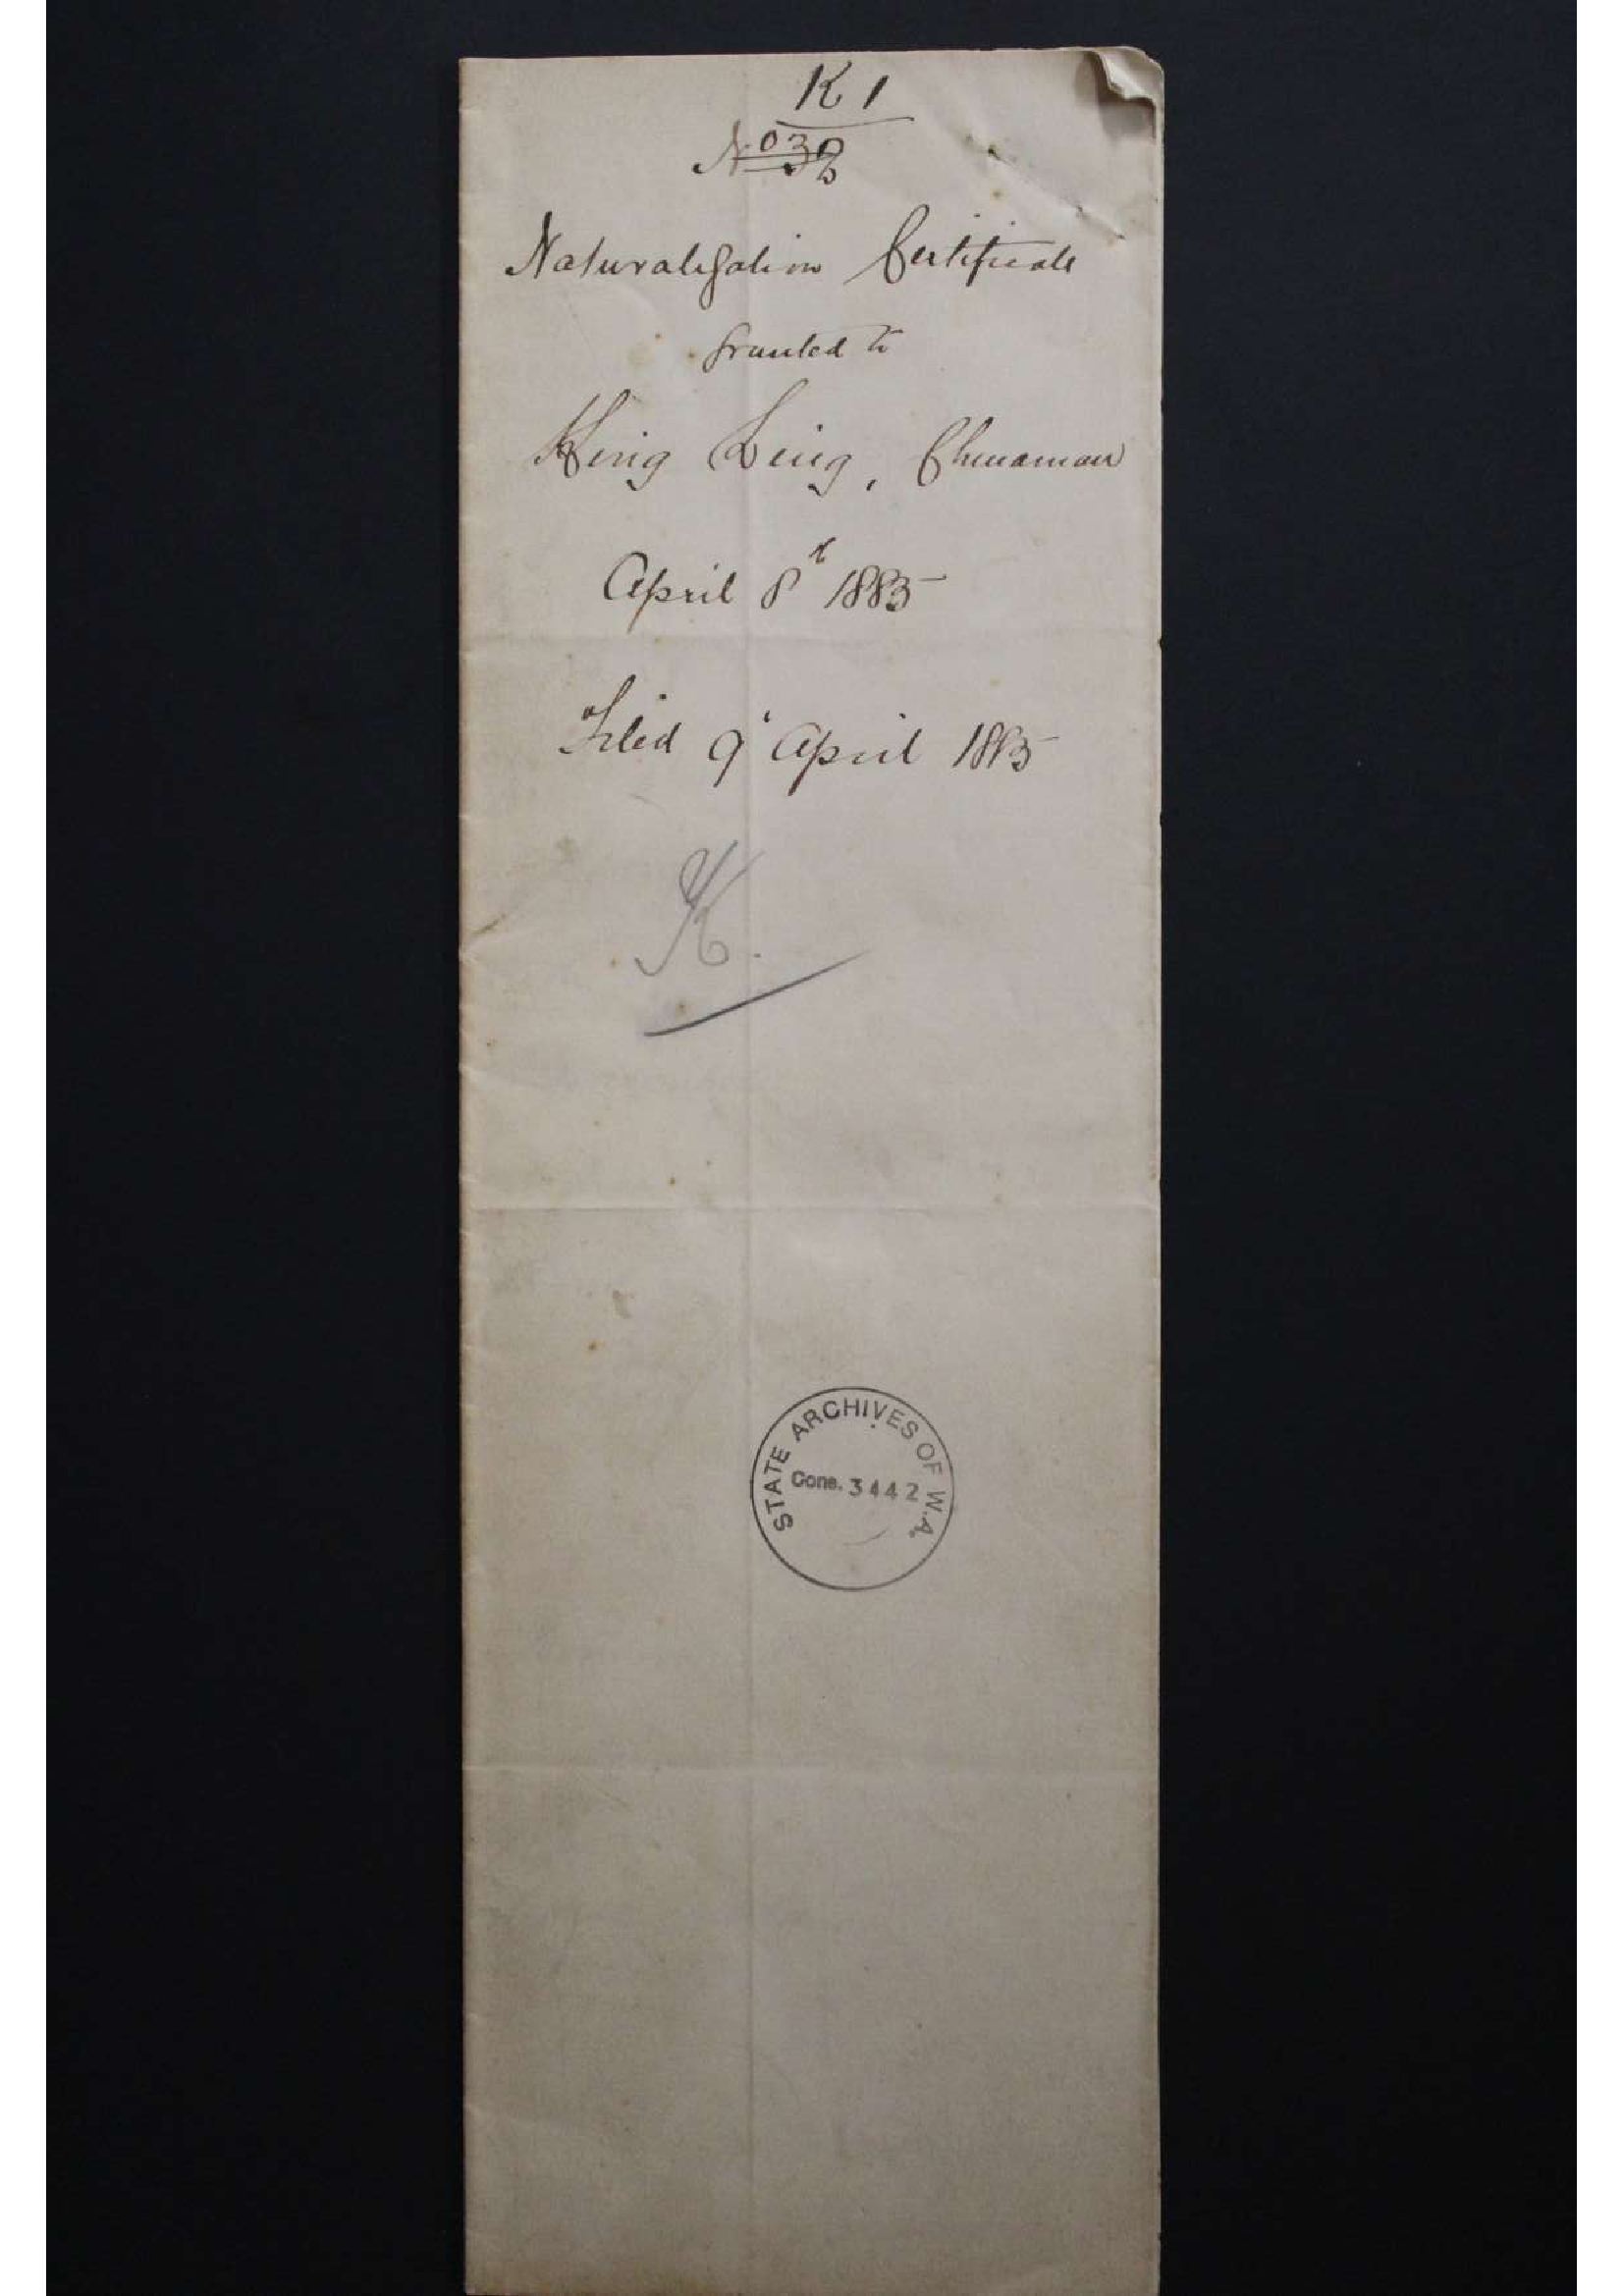 K 1
No 38
Naturalisation Certificate
Granted to
King Leing, Chinaman
April 8th 1885
Filed 9 April 1885
K.
STATE ARCHIVES OF W.A.
Cons. 3442